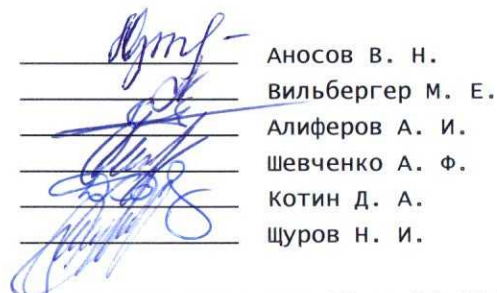 Аносов В. Н.
Вильбергер М. Е.
Алиферов А. И.
Шевченко А. Ф.
Котин Д. А.
Щуров Н. И.